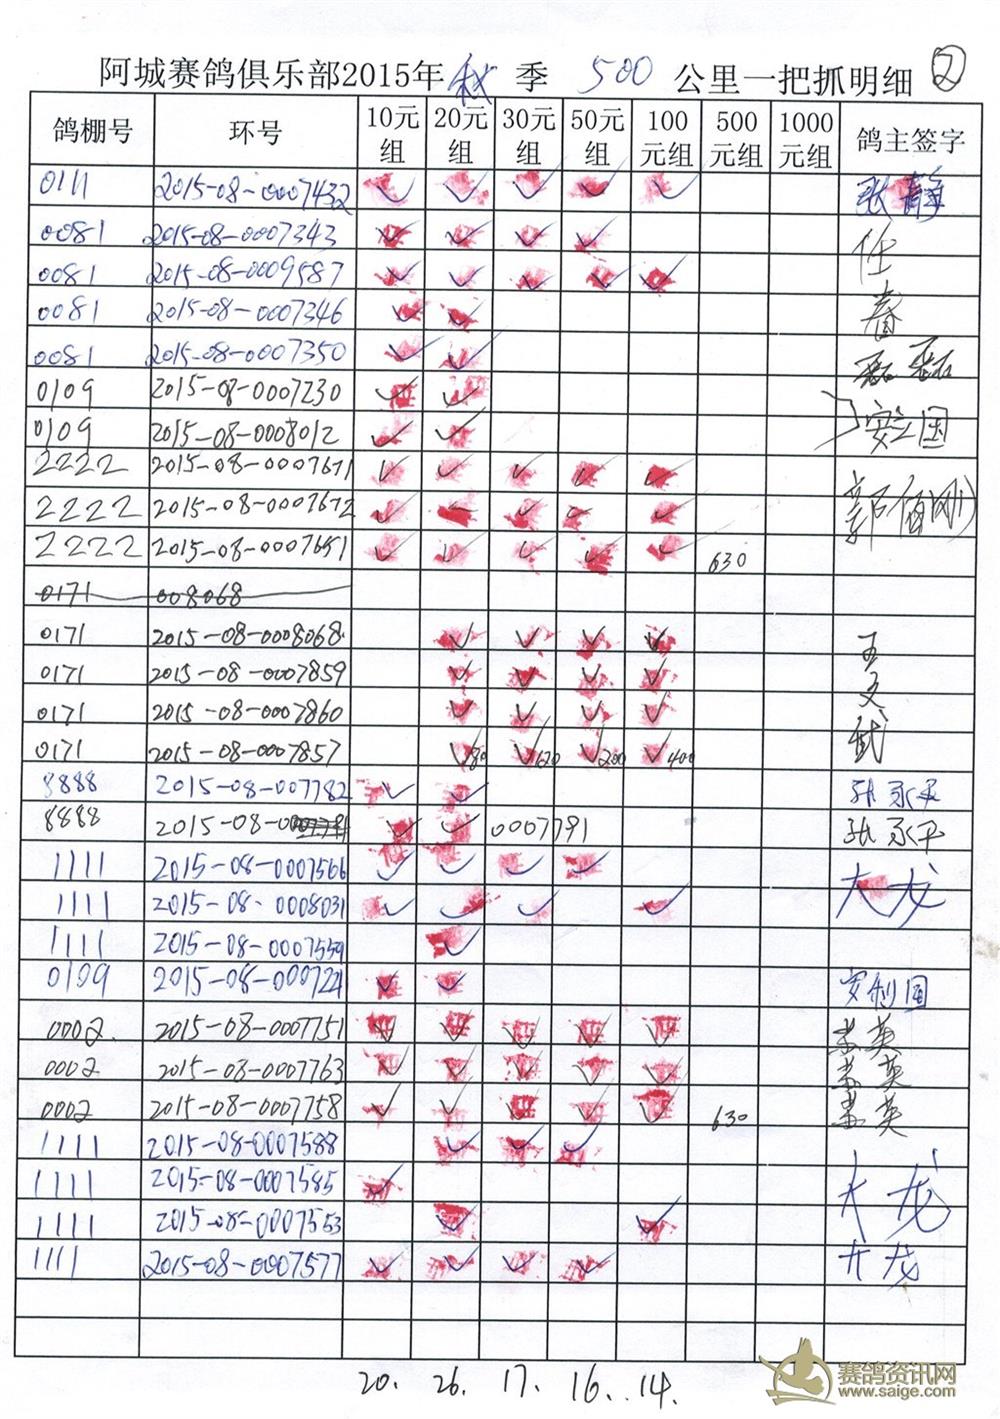 阿城赛鸽俱乐部2015年秋季 500 公里一把抓明细 ②
鸽棚号 环号 10元组 20元组 30元组 50元组 100元组 500元组 1000元组 鸽主签字
0111 2015-08-0007432 ✓ ✓ ✓ ✓ ✓ 张静
0081 2015-08-0007343 ✓ ✓ ✓ ✓ 任
0081 2015-08-0009587 ✓ ✓ ✓ ✓ ✓
0081 2015-08-0007346 ✓ ✓ 春
0081 2015-08-0007350 ✓ ✓
0109 2015-08-0007230 ✓ ✓
0109 2015-08-0008012 ✓ ✓ 安立国
2222 2015-08-0007671 ✓ ✓ ✓ ✓ ✓
2222 2015-08-0007672 ✓ ✓ ✓ ✓ ✓ 郭佰(刚)
2222 2015-08-0007651 ✓ ✓ ✓ ✓ ✓ 630
0171 008068
0171 2015-08-0008068 ✓ ✓ ✓ ✓ 王
0171 2015-08-0007859 ✓ ✓ ✓ ✓ 文
0171 2015-08-0007860 ✓ ✓ ✓ ✓
0171 2015-08-0007857 ✓80 ✓120 ✓200 ✓400 武
8888 2015-08-007782 ✓ ✓ 张永平
8888 2015-08-00 ✓ ✓ 0007791 张永平
1111 2015-08-0007566 ✓ ✓ ✓ ✓ 大龙
1111 2015-08-0008031 ✓ ✓ ✓ ✓
1111 2015-08-0007559 ✓
0109 2015-08-000724 ✓ ✓ 安利国
0002 2015-08-0007751 ✓ ✓ ✓ ✓ ✓ 英
0002 2015-08-0007763 ✓ ✓ ✓ ✓ ✓ 英
0002 2015-08-0007758 ✓ ✓ ✓ ✓ ✓ 630 英
1111 2015-08-0007588 ✓ ✓ ✓
1111 2015-08-0007585 ✓ 大龙
1111 2015-08-0007553 ✓ ✓
1111 2015-08-0007577 ✓ ✓ ✓ ✓ 大龙
20. 26. 17. 16. 14.
赛鸽资讯网
www.saige.com